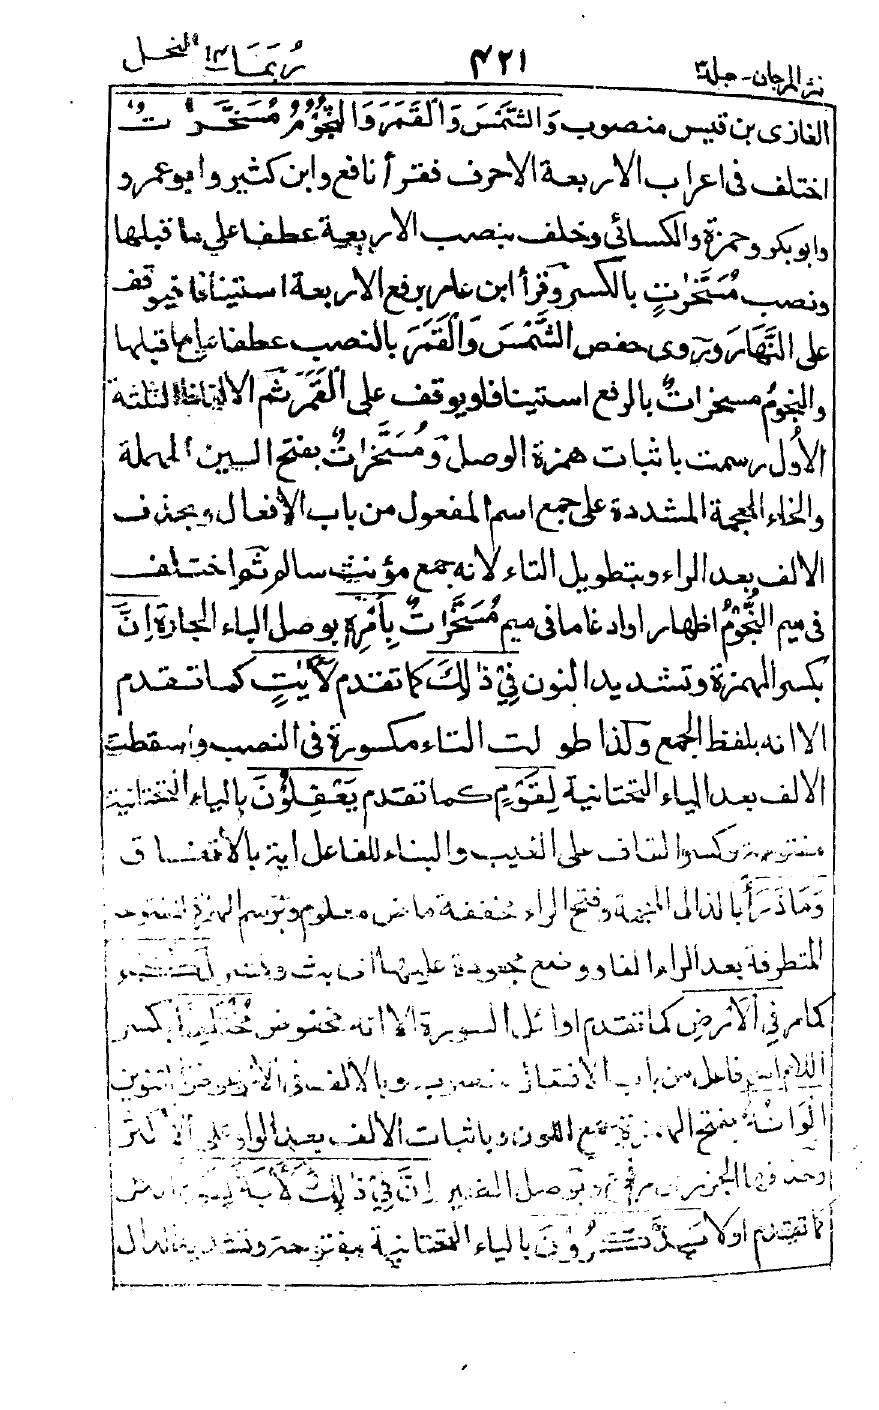 نثر المرجان - جلد ٣ ٤٢١ رُبَمَا ١٤ النحل
الغازى بن قيس منصوب وَالشَّمْسَ وَالْقَمَرَ وَالنُّجُوْمُ مُسَخَّرٰتٌ
اختلف فى اعراب الاربعة الاحرف فقرأ نافع وابن كثير وابو عمرو
وابوبكر وحمزة والكسائى وخلف بنصب الاربعة عطفا على ما قبلها
ونصب مُسَخَّرٰتٍ بالكسر وقرأ ابن عامر برفع الاربعة استينافا فيوقف
على النَّهَارَ وروى حفص الشَّمْسَ وَالْقَمَرَ بالنصب عطفا على ما قبلها
والنجومُ مسخراتٌ بالرفع استينافا ويوقف على الْقَمَرَ ثم الالفاظ الثلثة
الأول رسمت باثبات همزة الوصل وَمُسَخَّرٰتٌ بفتح السين المهملة
والخاء المعجمة المشددة على جمع اسم المفعول من باب الافعال وبحذف
الالف بعد الراء وبتطويل التاء لانه جمع مؤنث سالم ثم اختلف
فى ميم النُّجُوْمُ اظهارا وادغاما فى ميم مُسَخَّرَاتٌ بِأَمْرِهٖ بوصل الباء الجارة اِنَّ
بكسر الهمزة وتشديد النون فِيْ ذٰلِكَ كما تقدم لَاٰيٰتٍ كما تقدم
الا انه بلفظ الجمع وكذا طولت التاء مكسورة فى النصب واسقطت
الالف بعد الياء التحتانية لِقَوْمٍ كما تقدم يَعْقِلُوْنَ بالياء التحتانية
مفتوحة وكسر القاف على الغيب والبناء للفاعل اية بالاتفاق
وَمَا ذَرَأَ بالذال المعجمة وفتح الراء مخففة ماض معلوم وترسم الهمزة المفتوحة
المتطرفة بعد الراء الفا ووضع مجعودة عليها
كما مر فِي الْاَرْضِ كما تقدم اوائل السورة الا انه مخفوض مُخْتَلِفًا بكسر
اللام اسم فاعل من باب الافتعال منصوب وبالالف فى الاخر عوض التنوين
اَلْوَانُهٗ بفتح الهمزة جمع اللون وباثبات الالف بعد الواو على الاكثر
وحذفها الجزرى وبوصل الضمير اِنَّ فِيْ ذٰلِكَ لَاٰيَةً لِّقَوْمٍ
كما تقدم اولا يَذَّكَّرُوْنَ بالياء التحتانية مفتوحة وتشديد الذال